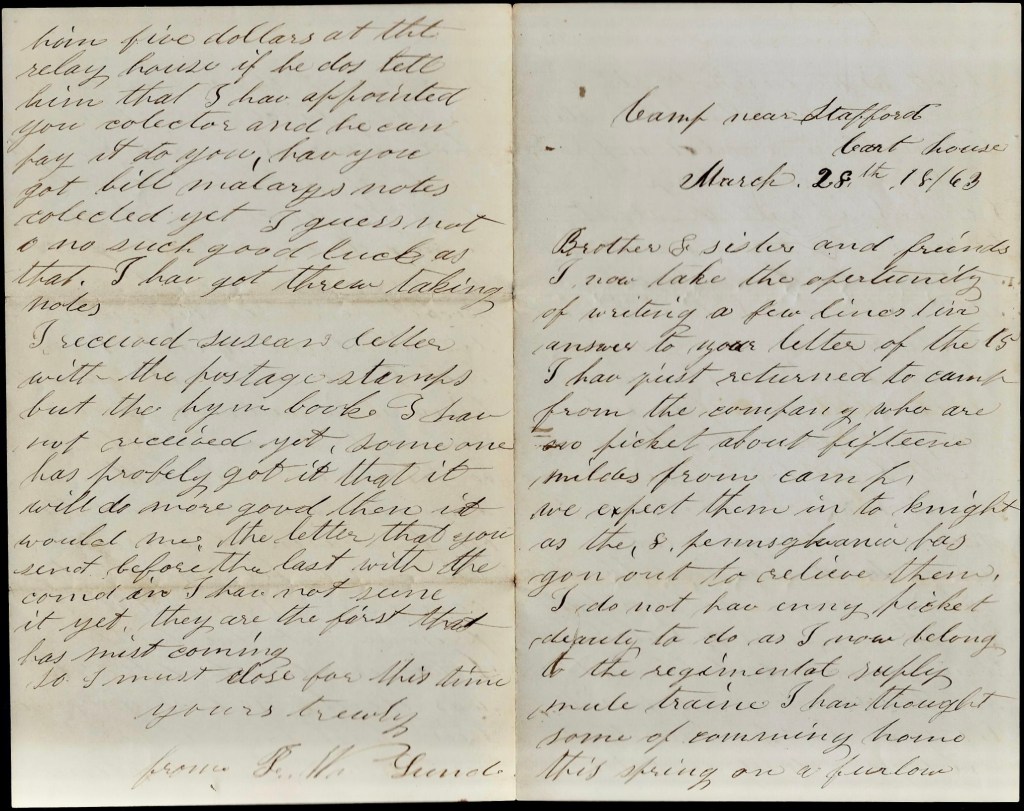 Camp near Stafford
Cart house
March. 28.th 18/63
Brother & sister and freinds
I now take the opertunity
of writing a few lines in
answer to your letter of the 15
I hav just returned to camp
from the company who are
no picket about fifteene
miloes from camp,
we expect them in to knight
as the, 8. pennsylvania has
gon out to relieve them.
I do not hav enny picket
deauty to do as I now belong
to the regimental suply
mule traine I hav thought
some of comming home
this spring on a furlow
him five dollars at the
relay house if he dos tell
him that I hav appointed
you colector and he can
pay it to you, hav you
got bill malarys notes
colected yet I guess not
o no such good luck as
that. I hav got threw taking
notes
I received susean letter
with the postage stamps
but the hym book I hav
not received yet, some one
has probely got it that it
will do more good then it
would me. the letter that you
send before the last with the
comd in I hav not seene
it yet. they are the first that
has mist coming
so I must close for this time
yours trewly
from